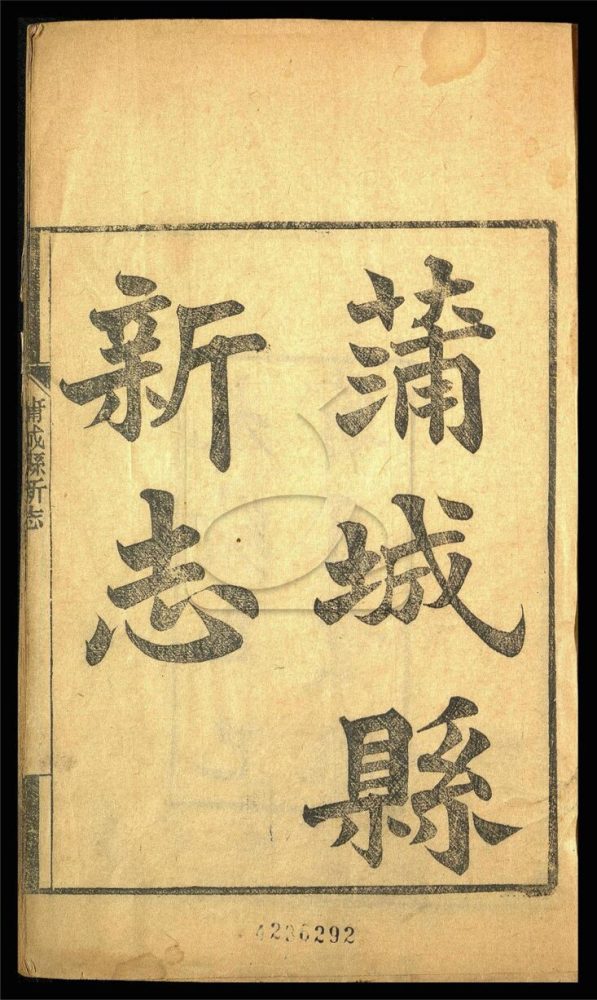 蒲城縣
新志
城縣新志